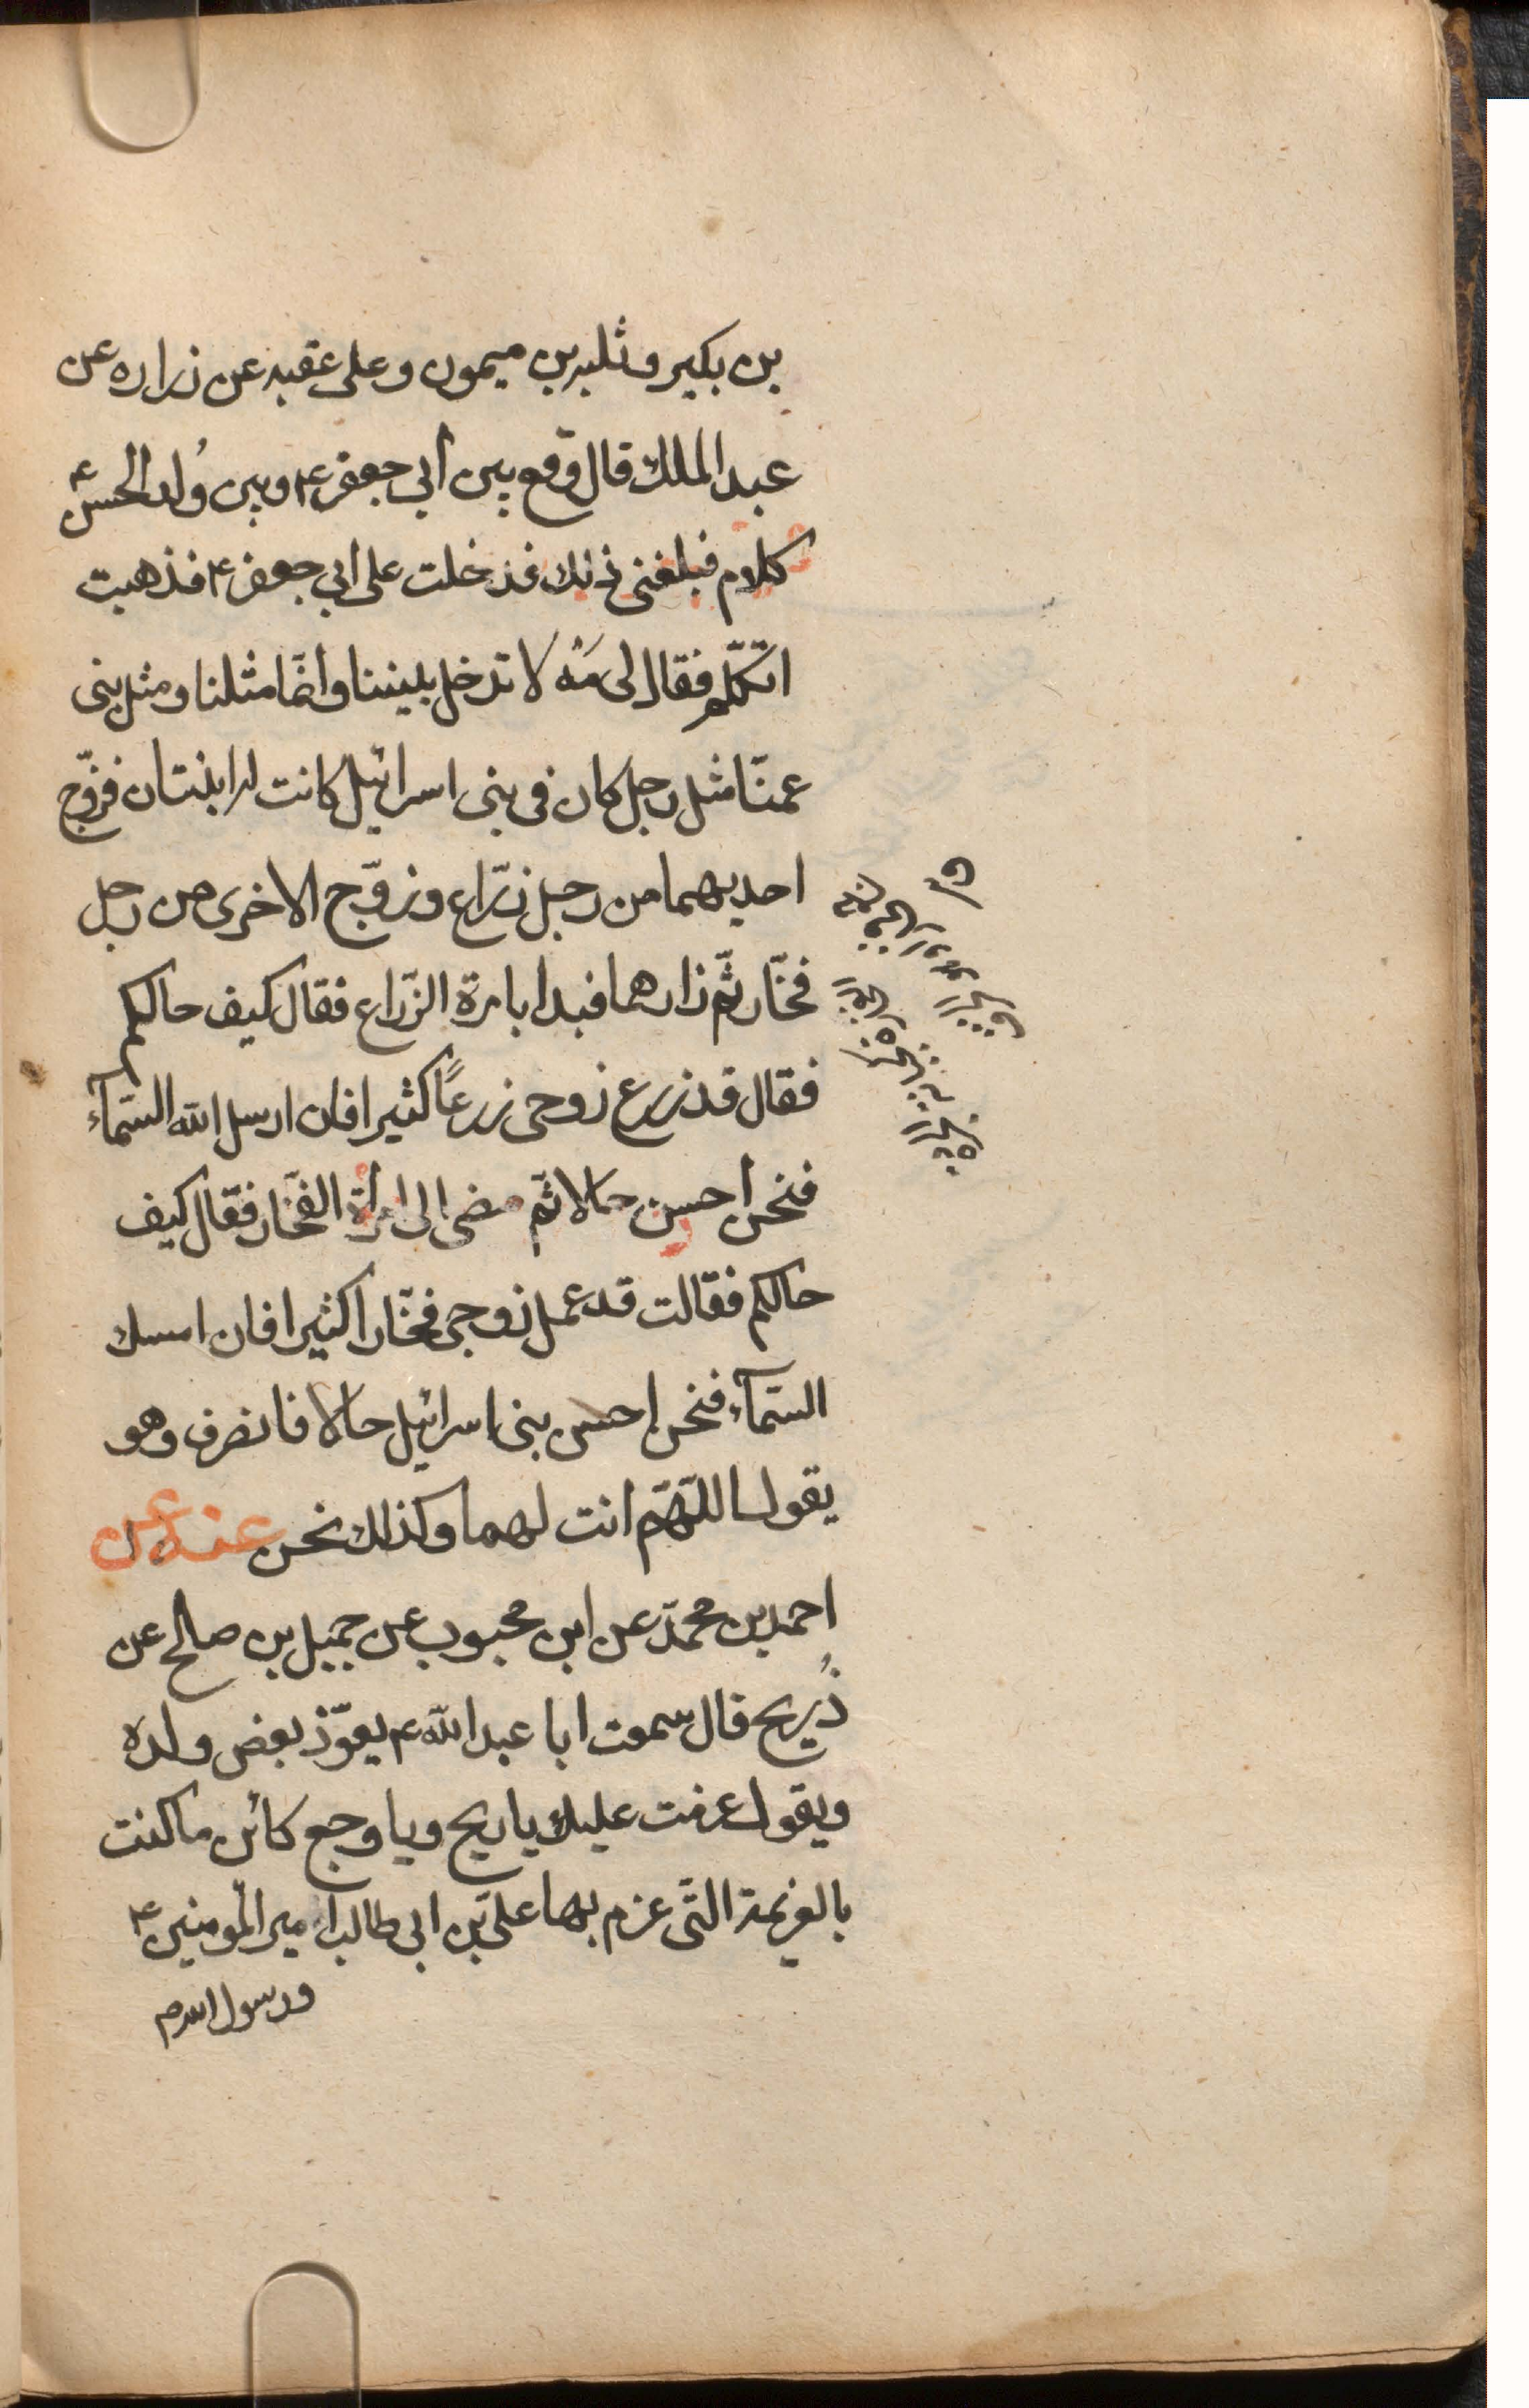 بن بكير و ثلبه بن ميمون و على عقبه عن زراره عن
عبد الملك قال وقع بين أبي جعفر ع و بين وُلد الحسن ع
كلام فبلغنى ذلك فدخلت على ابي جعفر ع فذهبت
اتكلّم فقال لى مَه لا تدخل بيننا و انمّا مثلنا و مثل بنى
عمنّا مثل رجل كان فى بنى اسرائيل كانت له ابنتان فزوّج
احديهما من رجل زرّاع و زوّج الاخرى من رجل
فخّار ثمّ زارهما فبدا بامرة الزّراع فقال كيف حالكم
فقال قد زرع زوجى زرعًا كثيرا فان ارسل الله السّمآء
فنحن احسن حالا ثمّ مضى الى امرأة الفخّار فقال كيف
حالكم فقالت قد عمل زوجى فخّارا كثيرا فان امسك
السّمآء فنحن احسن بنى اسرائيل حالا فانصرف و هو
يقول اللّهمّ انت لهما و كذلك نحن عنه عن
احمد بن محمّد عن ابن محبوب عن جميل بن صالح عن
ذُريح قال سمعت ابا عبد الله ع يعوّذ بعض ولده
و يقول عزمت عليك يا ريح و يا وجع كائن ما كنت
بالعزيمة التّى عزم بها علىّ بن ابى طالب امير المومنين ع
و رسول الله ص